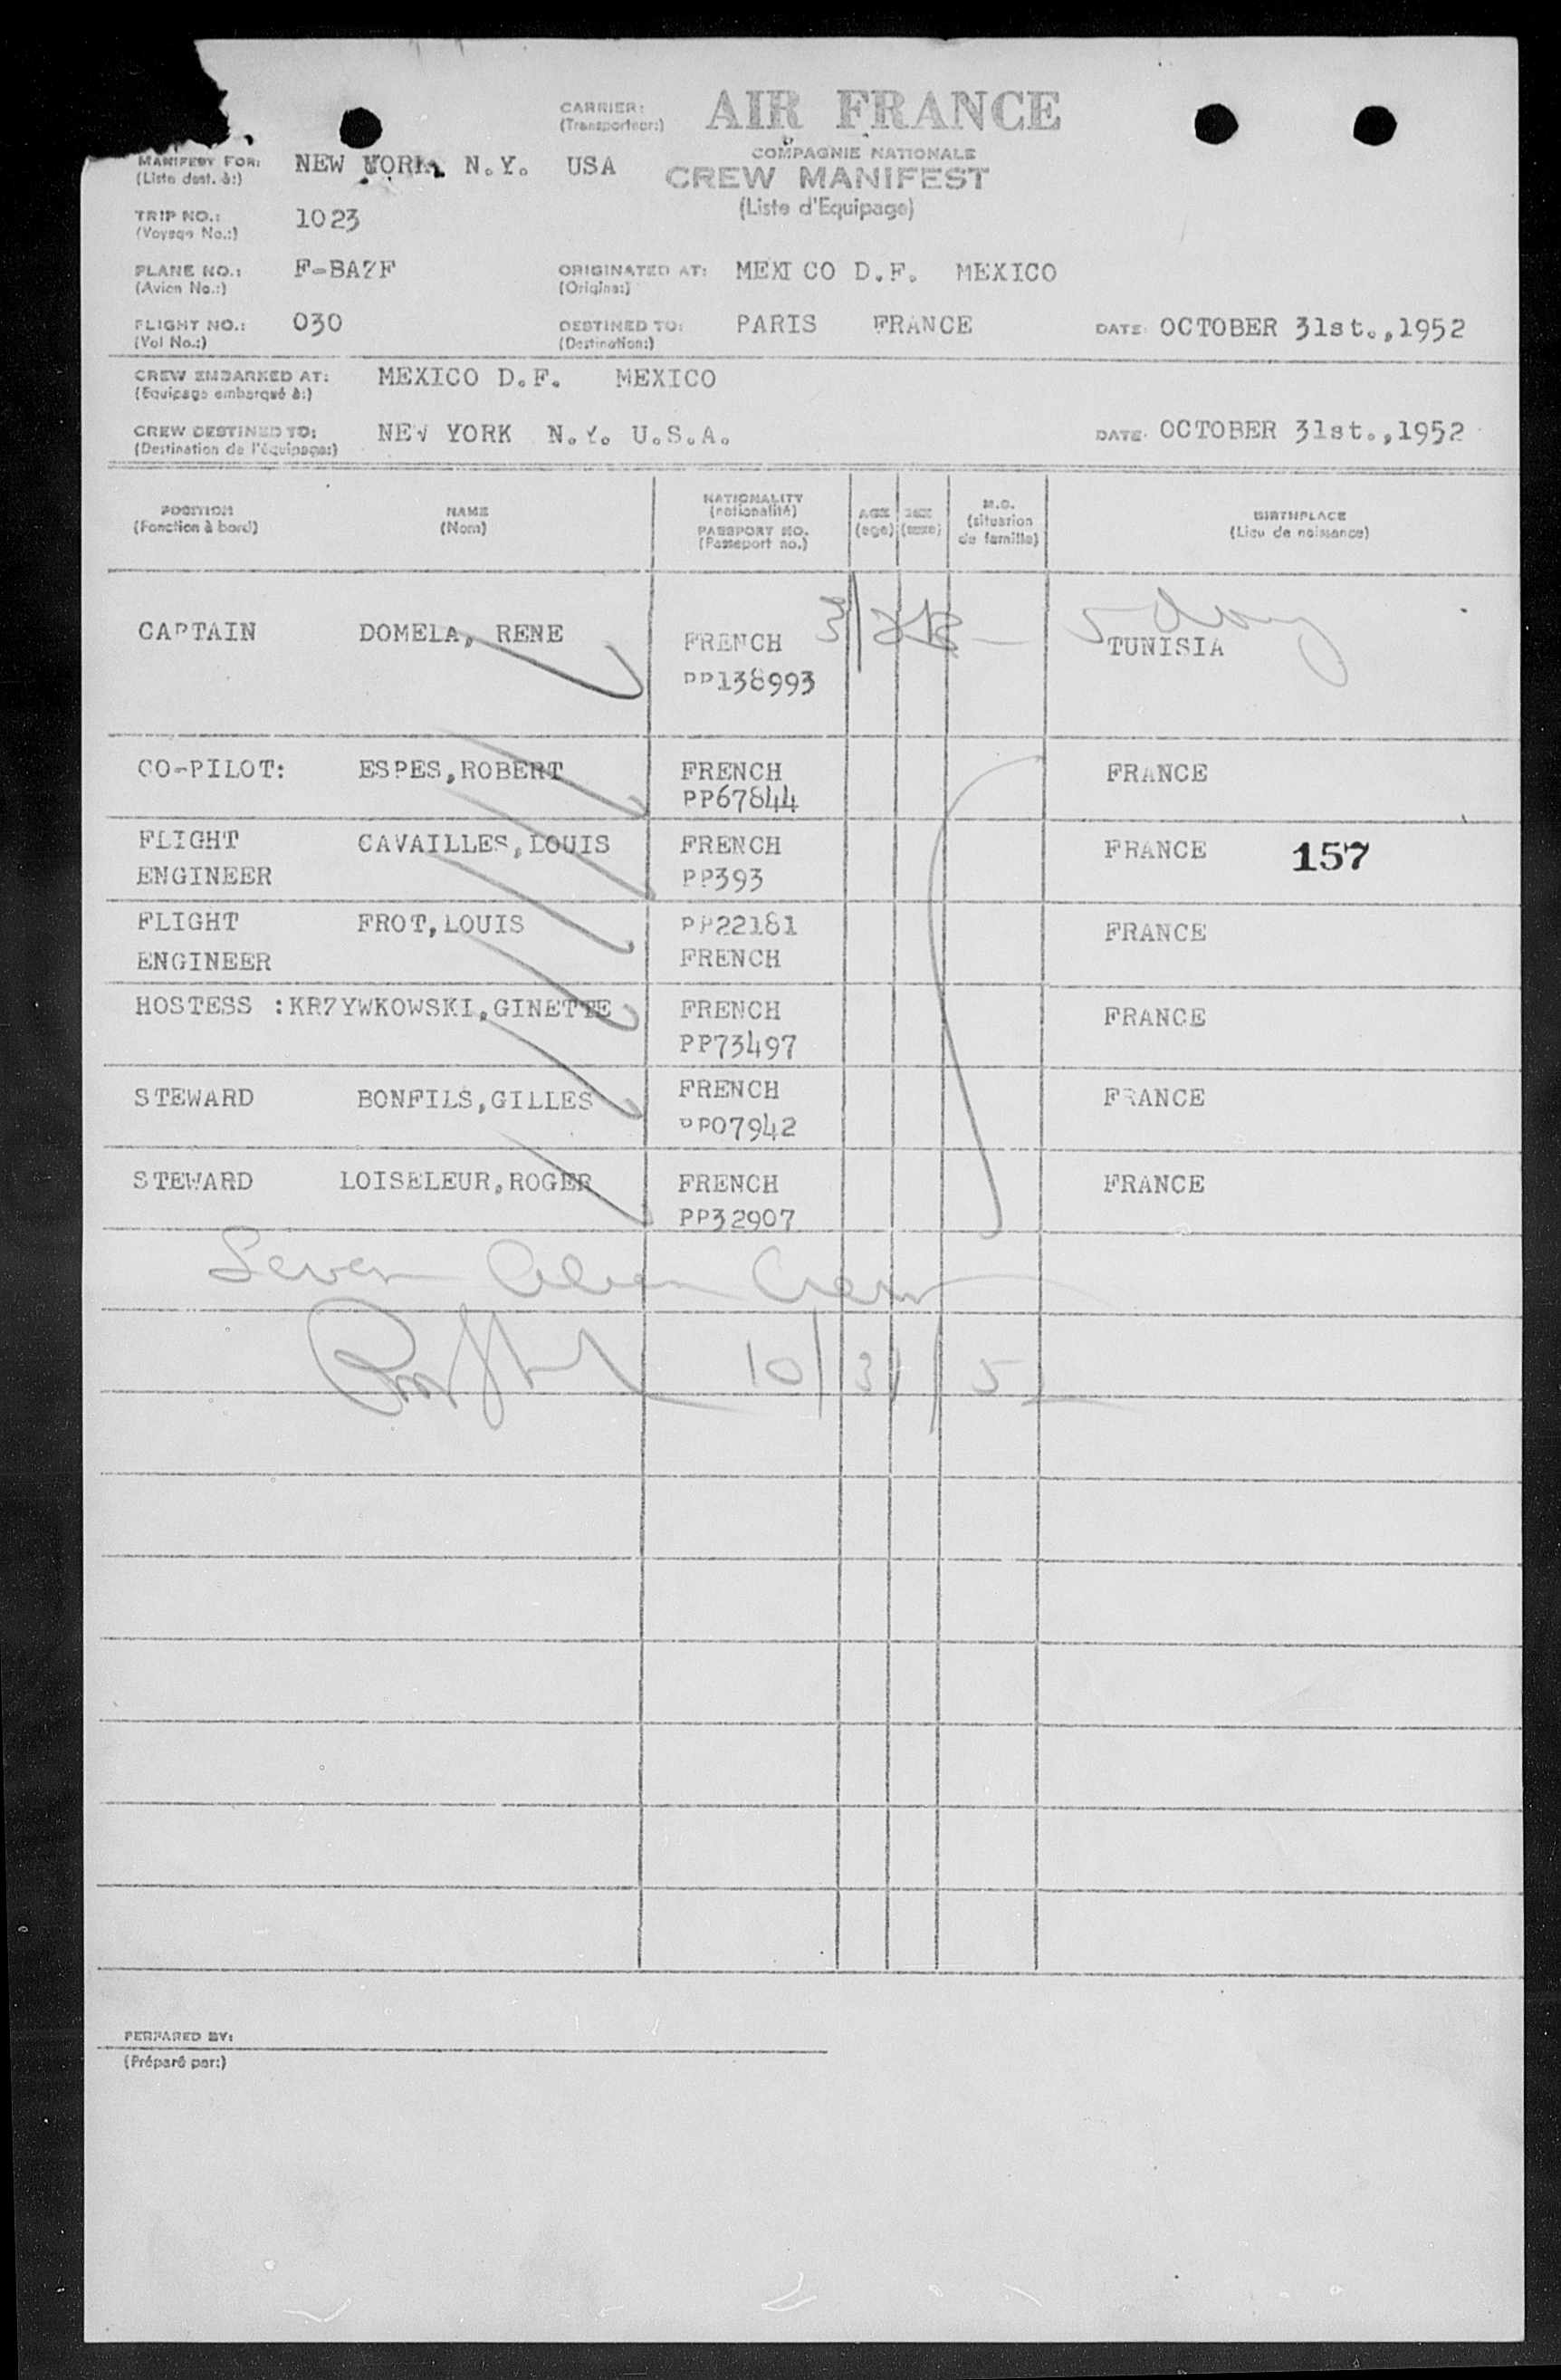 CARRIER: AIR FRANCE
(Transporteur:)
COMPAGNIE NATIONALE
MANIFEST FOR: NEW YORK, N.Y. USA CREW MANIFEST
(Liste dest. à:)
(Liste d'Equipage)
TRIP NO.: 1023
(Voyage No.:)
PLANE NO.: F-BAZF ORIGINATED AT: MEXICO D.F. MEXICO
(Avion No.:) (Origine:)
FLIGHT NO.: 030 DESTINED TO: PARIS FRANCE DATE: OCTOBER 31st.,1952
(Vol No.:) (Destination:)
CREW EMBARKED AT: MEXICO D.F. MEXICO
(Equipage embarqué à:)
CREW DESTINED TO: NEW YORK N.Y. U.S.A. DATE: OCTOBER 31st.,1952
(Destination de l'équipage:)
POSITION NAME NATIONALITY AGE SEX M.O. BIRTHPLACE
(Fonction à bord) (Nom) (nationalité) (age) (sexe) (situation (Lieu de naissance)
PASSPORT NO. de famille)
(Passeport no.)
CAPTAIN DOMELA, RENE FRENCH TUNISIA
PP138993
CO-PILOT: ESPES,ROBERT FRENCH FRANCE
PP67844
FLIGHT CAVAILLES,LOUIS FRENCH FRANCE 157
ENGINEER PP393
FLIGHT FROT,LOUIS PP22181 FRANCE
ENGINEER FRENCH
HOSTESS :KRZYWKOWSKI,GINETTE FRENCH FRANCE
PP73497
STEWARD BONFILS,GILLES FRENCH FRANCE
PP07942
STEWARD LOISELEUR,ROGER FRENCH FRANCE
PP32907
Seven Alien Crew
10/31/52
PERPARED BY:
(Préparé par:)